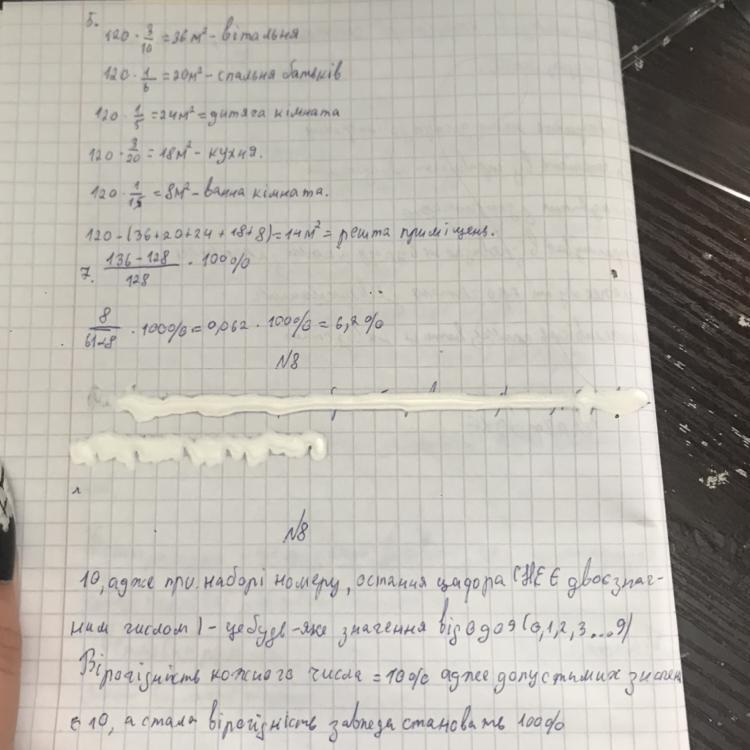 5.
120 · 3/10 = 36 м² - вітальня
120 · 1/6 = 20м² - спальня батьків
120 · 1/5 = 24м² = дитяча кімната
120 · 3/20 = 18м² - кухня.
120 · 1/15 = 8м² - ванна кімната.
120 - (36+20+24+18+8) = 14м² = решта приміщень.
7. (136 - 128)/128 · 100%
8/128 · 100% = 0,062 · 100% = 6,2%
№8
№8
10, адже при наборі номеру, остання цифора (НЕ Є двоєзнач-
ним числом) - це будь-яке значення від 0 до 9 (0,1,2,3...9)
Вірогідність кожного числа = 10% адже допустимих значен
є 10, а стала вірогідність завжеда становить 100%